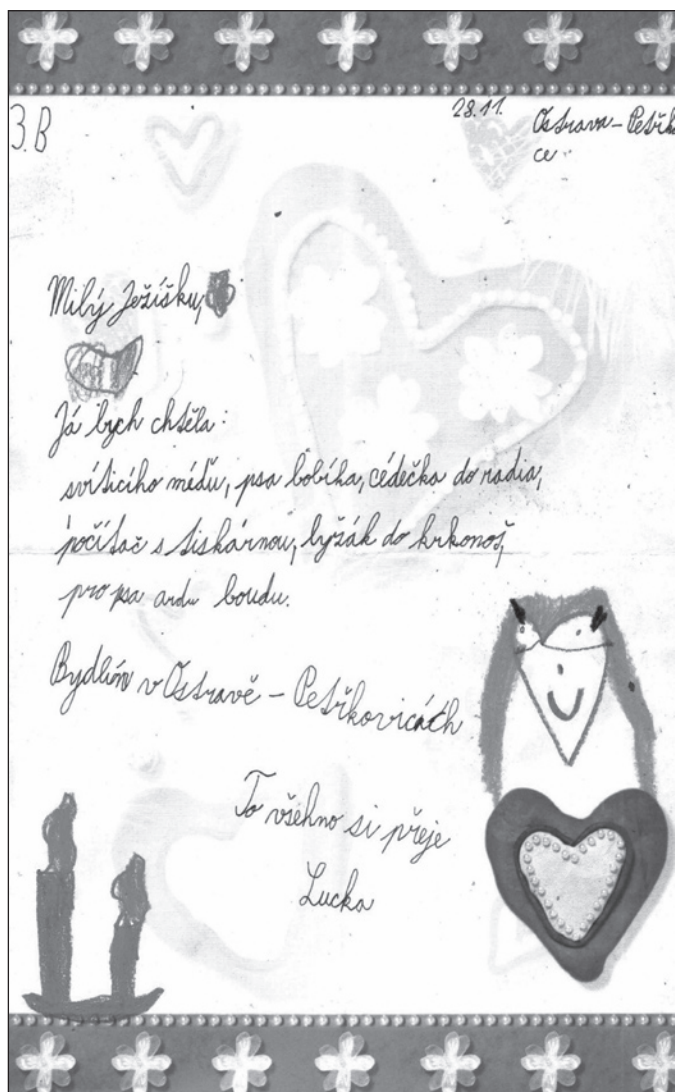 3.B
28.11.
Ostrava-Petřko
ce
Milý Ježíšku,
Já bych chtěla:
svíticího méďu, psa bobíka, cédečka do radia,
počítač s tiskárnou, lyžák do krkonoš,
pro psa ardu boudu.
Bydlím v Ostravě - Petřkovicách
To všehno si přeje
Lucka